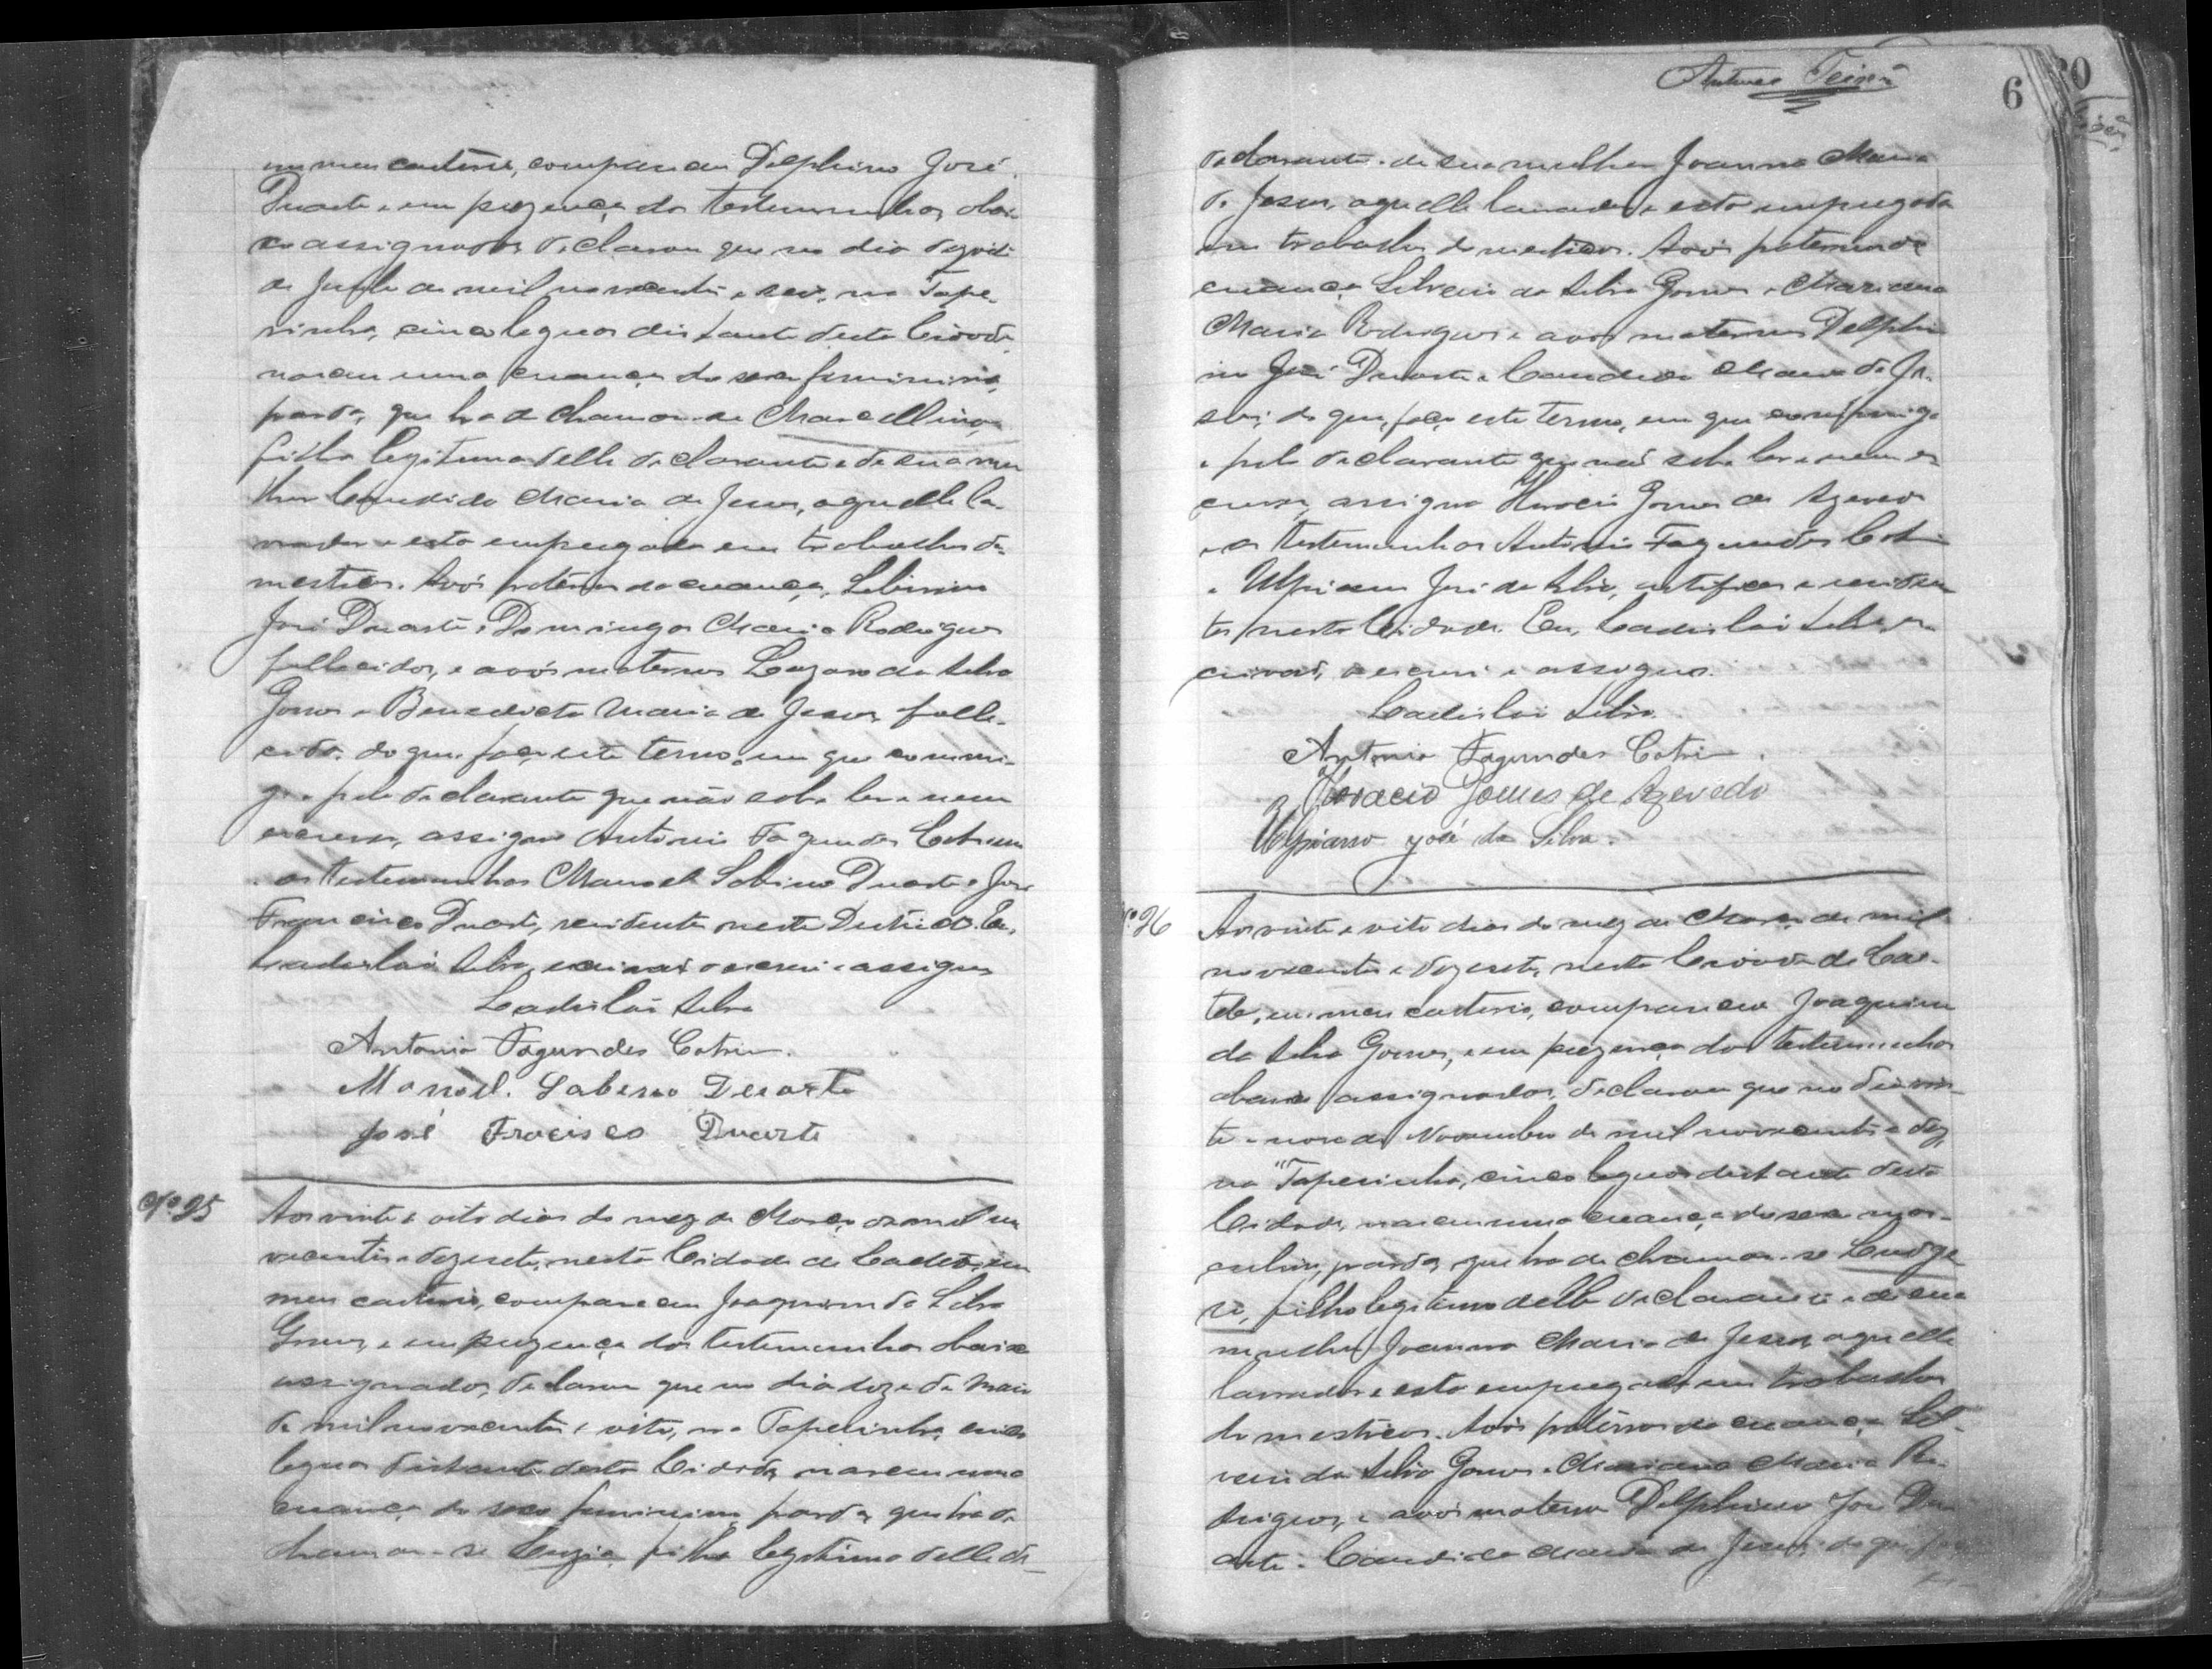 em meu cartorio, compareceu Delphino José
Duarte e em prezença das testemunhas abai-
xo assignadas declarou que no dia dezoito
de Junho de mil novecentos e seis, na Tape-
rinha, cinco leguas distante desta Cidade,
nasceu uma creança do sexo feminino,
parda, que ha de chamar-se Marcellina,
filha legitima delle declarante e de sua mu
lher Candida Maria de Jesus, aquelle la-
vrador e esta empregada em trabalhos do-
mesticos. Avós paternos da creança,
José Duarte e Domingas Maria Rodrigues
fallecidos, e avós maternos Lazaro da Silva
Gomes e Benedicta Maria de Jesus, falle-
cida. do que, faço este termo, em que commi-
go e pelo declarante que não sabe ler e nem
escrever, assigna Antonio Fagundes Cotrim
e as testemunhas Manoel Sabino Duarte e José
Francisco Duarte, residentes neste Districto. Eu,
Ladislái Silva, escrivaõ o escrevi e assigno
Ladislái Silva
Antonio Fagundes Cotrim.
Manoel. Sabino Duarte
José Francisco Duarte
Nº 25
Aos vinte e oito dias do mez de Março de mil no
vecentos e dezesete, nesta Cidade de Caeteté, em
meu cartorio, compareceu Joaquim da Silva
Gomes, e em prezença das testemunhas abaixo
assignadas, declarou que no dia doze de Maio
de mil novecentos e oito, na Taperinha, cinco
leguas distante desta Cidade, nasceu uma
creança do sexo feminino, parda, que ha de
chamar-se Luzia, filha legitima delle de-
Antunes Teixrª
6
20
clarante e de sua mulher Joanna Maria
de Jesus, aquelle lavrador e esta empregada
em trabalhos domesticos. Avós paternos da
creança Silverio da Silva Gomes e Marianna
Maria Rodrigues e avós maternos Delphi
no José Duarte e Candida Maria de Je-
sus; do que, faço este termo, em que commigo
e pelo declarante que naõ sabe ler e nem es-
crever, assigna Horacio Gomes de Azevedo
e as testemunhas Antonio Fagundes Cotrim
e Ulpiano José da Silva, e residen
tes nesta Cidade. Eu, Ladislái Silva, es-
crivaõ, o escrevi e assigno.
Ladislái Silva.
Antonio Fagundes Cotrim.
Horacio Gomes de Azevedo
Ulpiano José da Silva.
Nº 26
Aos vinte e oito dias do mez de Março de mil
novecentos e dezesete, nesta Cidade de Cae-
teté, em meu cartorio, compareceu Joaquim
da Silva Gomes, e em prezença das testemunhas
abaixo assignadas, declarou que no dia vin-
te e nove de Novembro de mil novecentos e dez,
na "Taperinha, cinco leguas distante desta
Cidade, nasceu uma creança do sexo mas-
culino, parda, que ha de chamar-se Ludge
ro, filho legitimo delle declarante e de sua
mulher Joanna Maria de Jesus, aquelle
lavrador e esta empregada em trabalhos
domesticos. Avós paternos da creança Sil-
verio da Silva Gomes e Marianna Maria Ro-
drigues, e avós maternos Delphino José Du-
arte e Candida Maria de Jesus; do que, faço